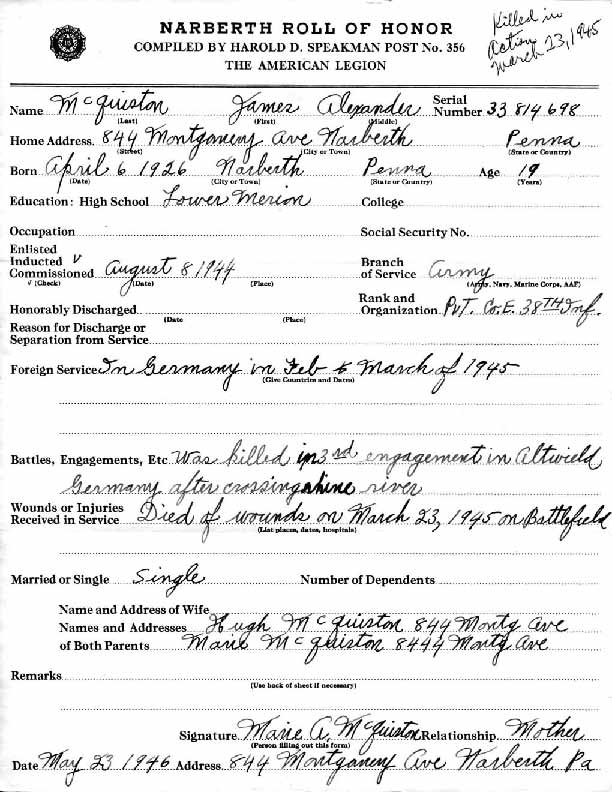 NARBERTH ROLL OF HONOR
COMPILED BY HAROLD D. SPEAKMAN POST No. 356
THE AMERICAN LEGION
Killed in
Action
March 23, 1945
Name McQuiston James Alexander Serial Number 33 814 698
(Last) (First) (Middle)
Home Address 844 Montgomery Ave Narberth Penna
(Street) (City or Town) (State or Country)
Born April 6 1926 Narberth Penna Age 19
(Date) (City or Town) (State or Country) (Years)
Education: High School Lower Merion College
Occupation Social Security No.
Enlisted
Inducted √
Commissioned August 8 1944 Branch of Service Army
√ (Check) (Date) (Place) (Army, Navy, Marine Corps, AAF)
Honorably Discharged Rank and Organization Pvt. Co. E. 38TH Inf.
(Date (Place)
Reason for Discharge or
Separation from Service
Foreign Service In Germany in Feb & March of 1945
(Give Countries and Dates)
Battles, Engagements, Etc Was killed in 3rd engagement in Altwield
Germany after crossing rhine river
Wounds or Injuries
Received in Service Died of wounds on March 23, 1945 on Battlefield
(List places, dates, hospitals)
Married or Single Single Number of Dependents
Name and Address of Wife
Names and Addresses Hugh McQuiston 844 Montg Ave
of Both Parents Marie McQuiston 8444 Montg Ave
Remarks
(Use back of sheet if necessary)
Signature Marie A. McQuiston Relationship Mother
(Person filling out this form)
Date May 23 1946 Address 844 Montgomery Ave Narberth Pa